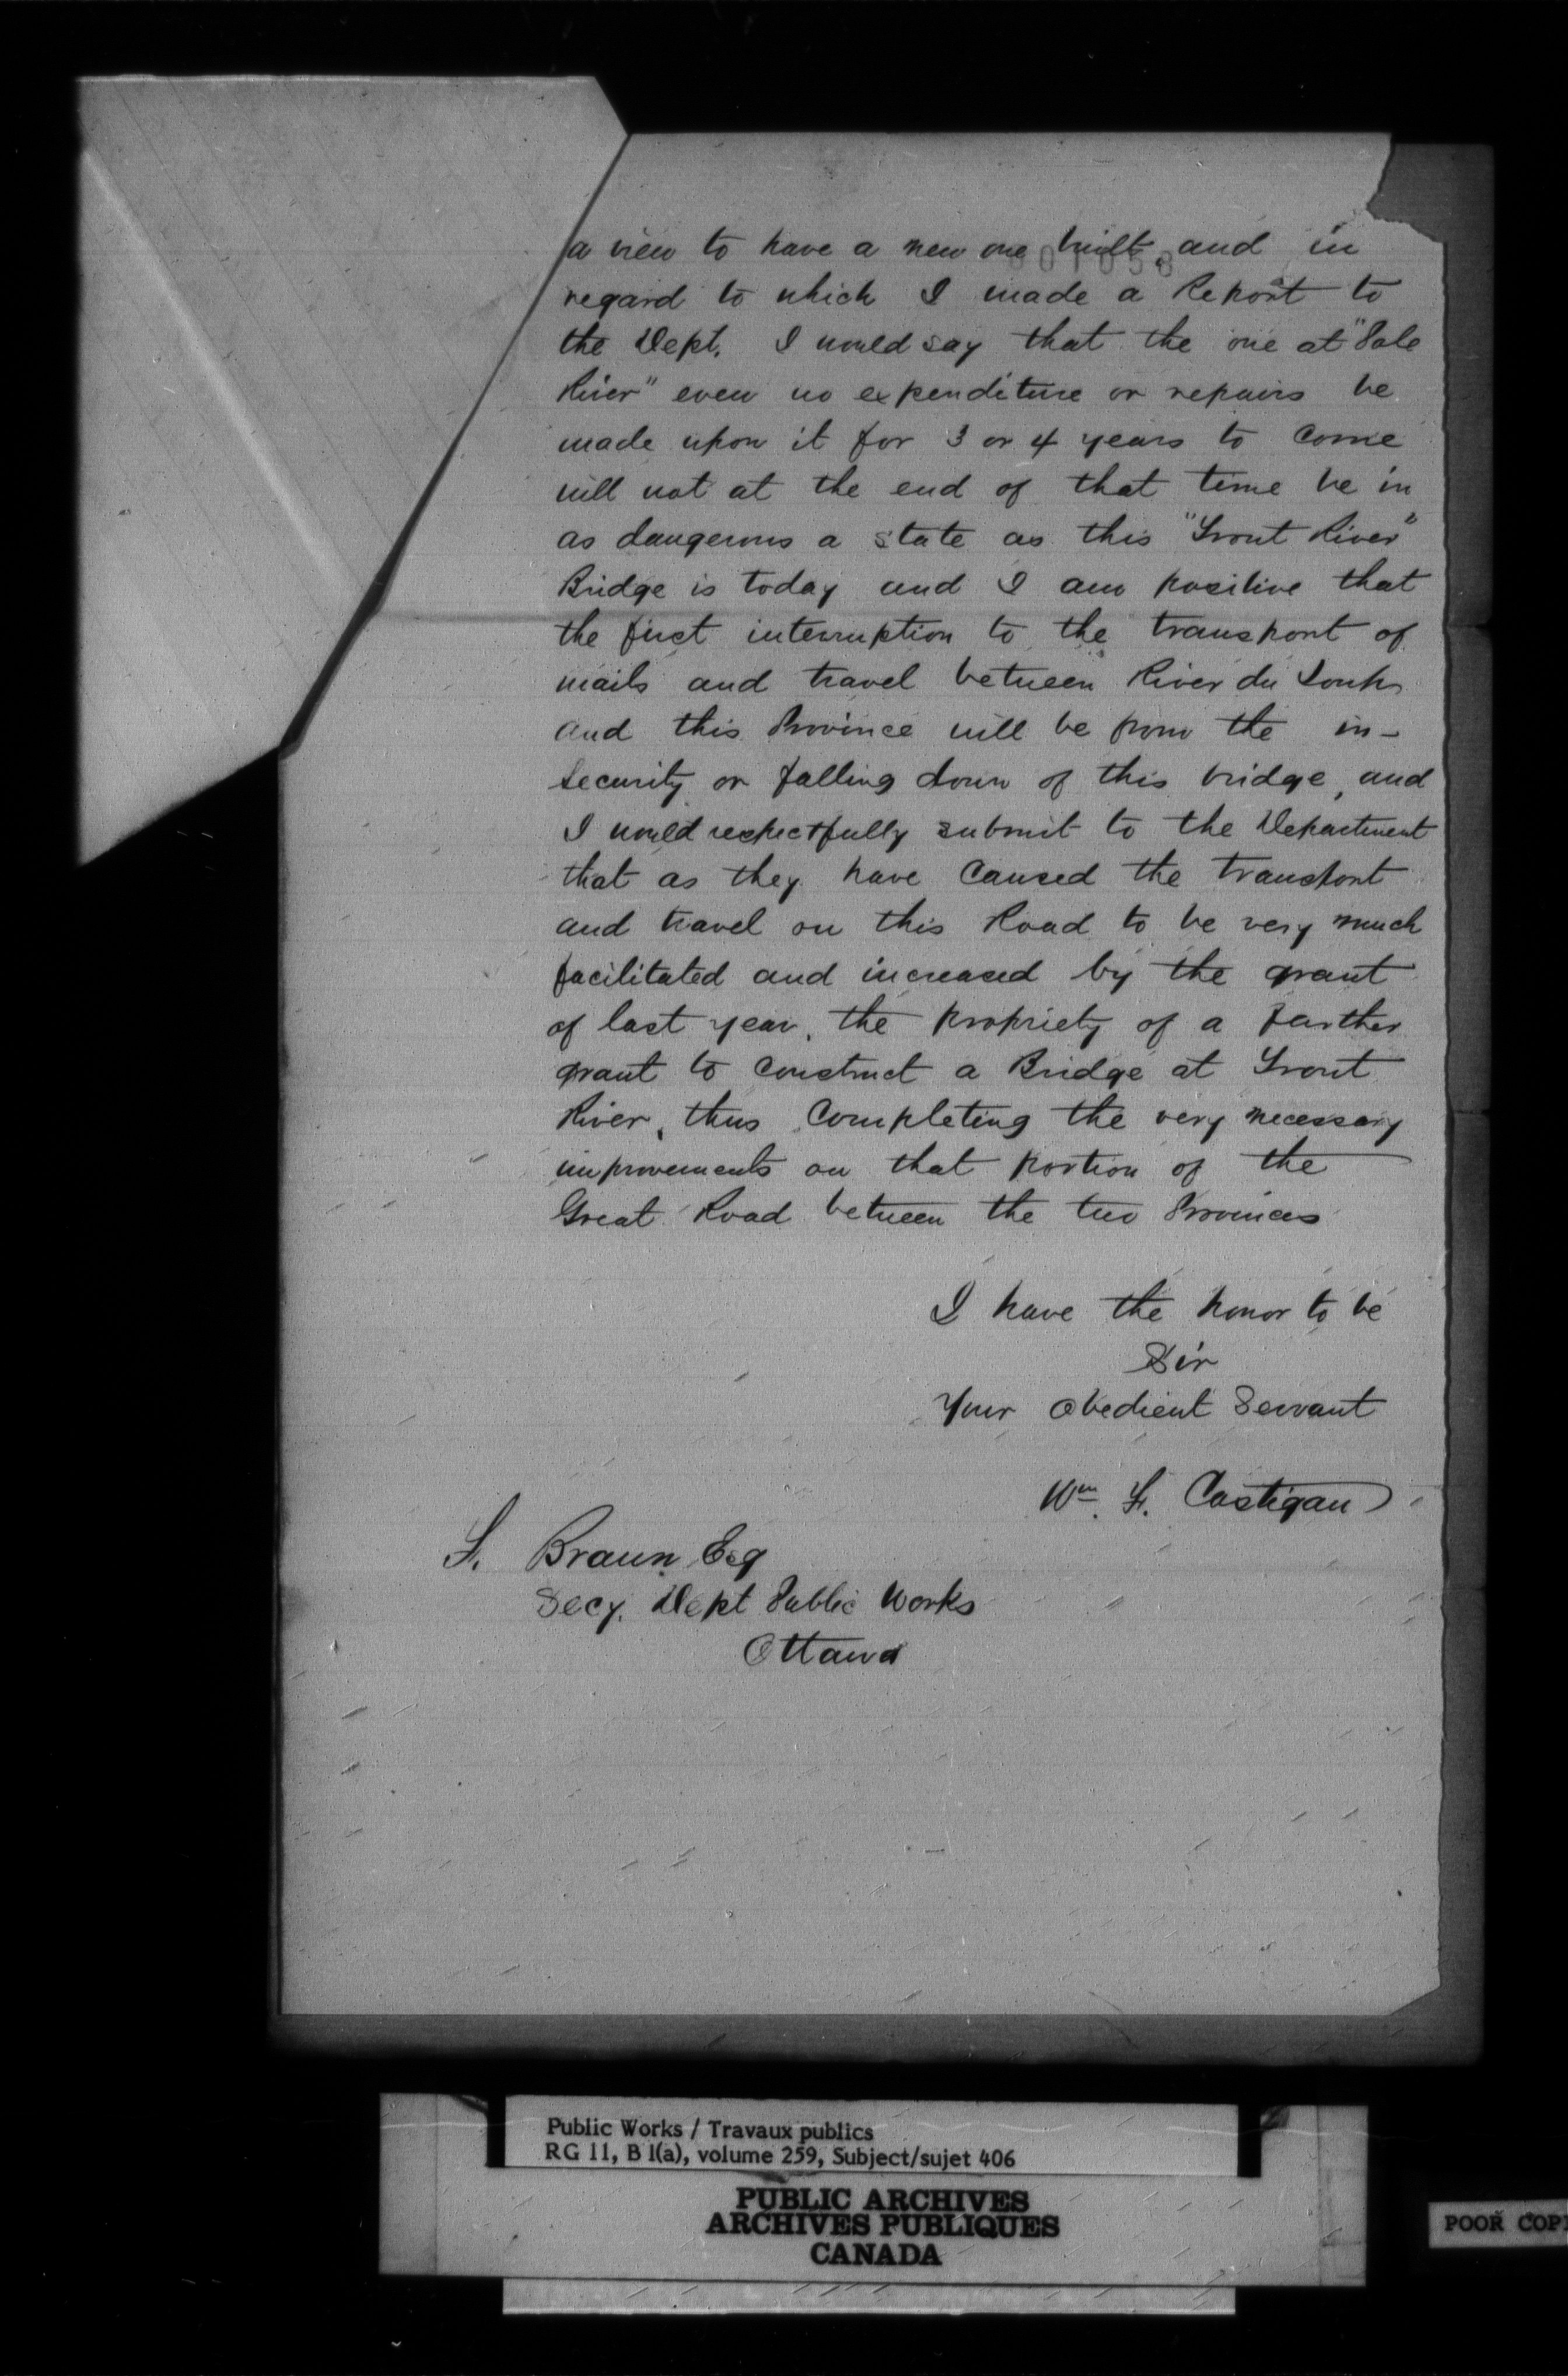 a view to have a new one built, and in
regard to which I made a Report to
the Dept. I would say that the one at "Pale
River" even no expenditure or repairs be
made upon it for 3 or 4 years to come
will not at the end of that time be in
as dangerous a state as this "Trout River"
Bridge is today and I am positive that
the first interruption to the transport of
mails and travel between River du Loup
and this Province will be from the in-
security or falling down of this bridge, and
I would respectfully submit to the Department
that as they have caused the transport
and travel on this Road to be very much
facilitated and increased by the grant
of last year, the propriety of a farther
grant to construct a Bridge at Trout
River, thus completing the very necessary
improvements on that portion of the
Great Road between the two Provinces
I have the honor to be
Sir
Your obedient Servant
Wm. F. Costigan
F. Braun Esq
Secy. Dept Public Works
Ottawa
Public Works / Travaux publics
RG 11, B 1(a), volume 259, Subject/sujet 406
PUBLIC ARCHIVES
ARCHIVES PUBLIQUES
CANADA
POOR COP